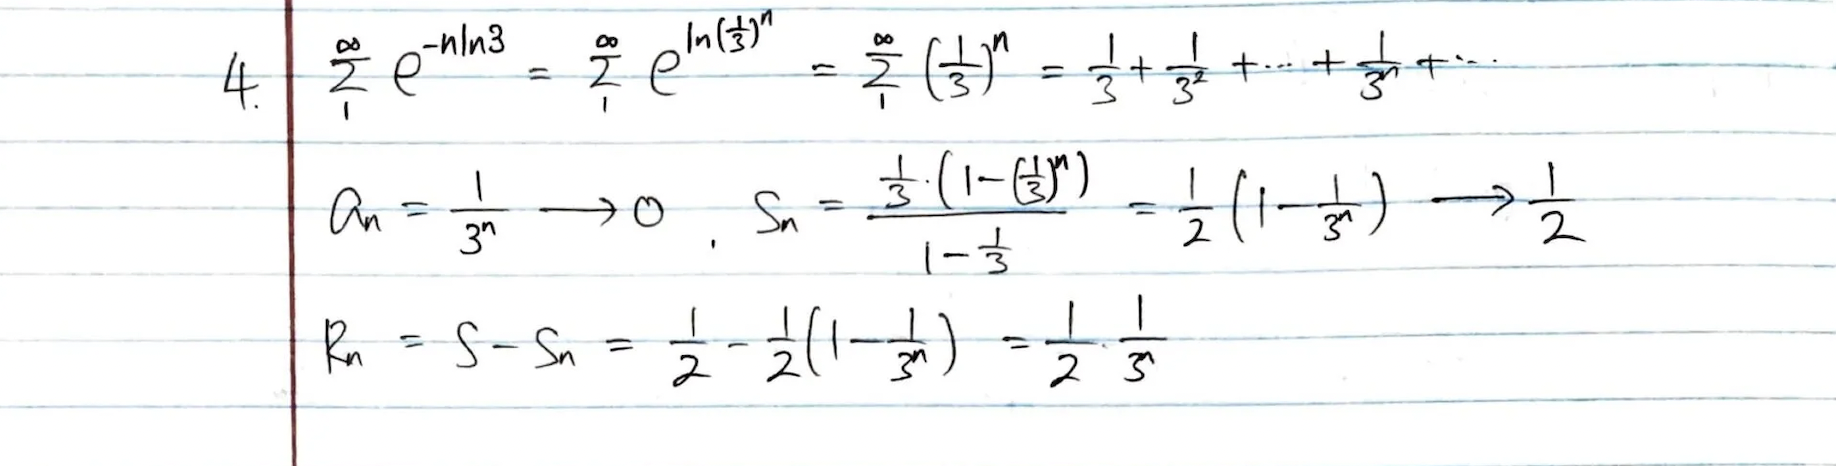 4. ∞Σ1 e^(-n ln3) = ∞Σ1 e^(ln(1/3)^n) = ∞Σ1 (1/3)^n = 1/3 + 1/3^2 + ... + 1/3^n + ...
a_n = 1/3^n → 0 , S_n = (1/3 · (1-(1/3)^n)) / (1 - 1/3) = 1/2 (1 - 1/3^n) → 1/2
R_n = S - S_n = 1/2 - 1/2 (1 - 1/3^n) = 1/2 · 1/3^n